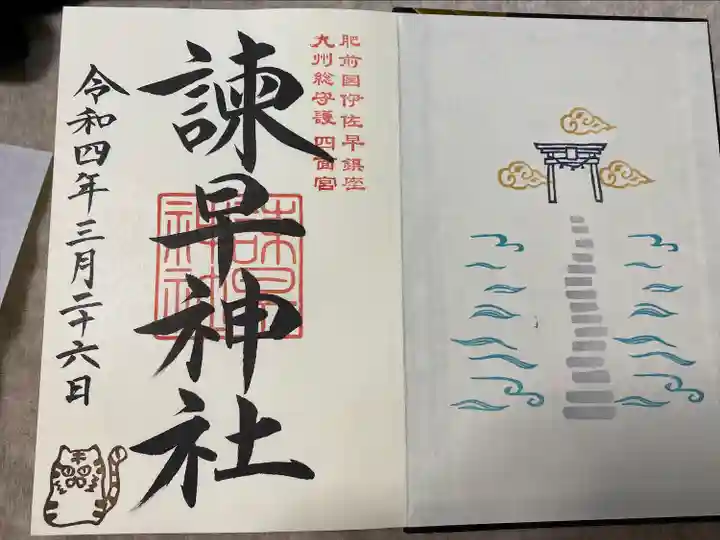 肥前国伊佐早鎮座
九州総守護 四面宮
諫早神社
諫早神社
令和四年三月二十六日